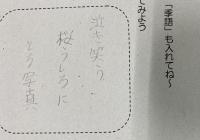 「季語」も入れてね〜
てみよう
泣き笑う
桜うしろに
とる写真